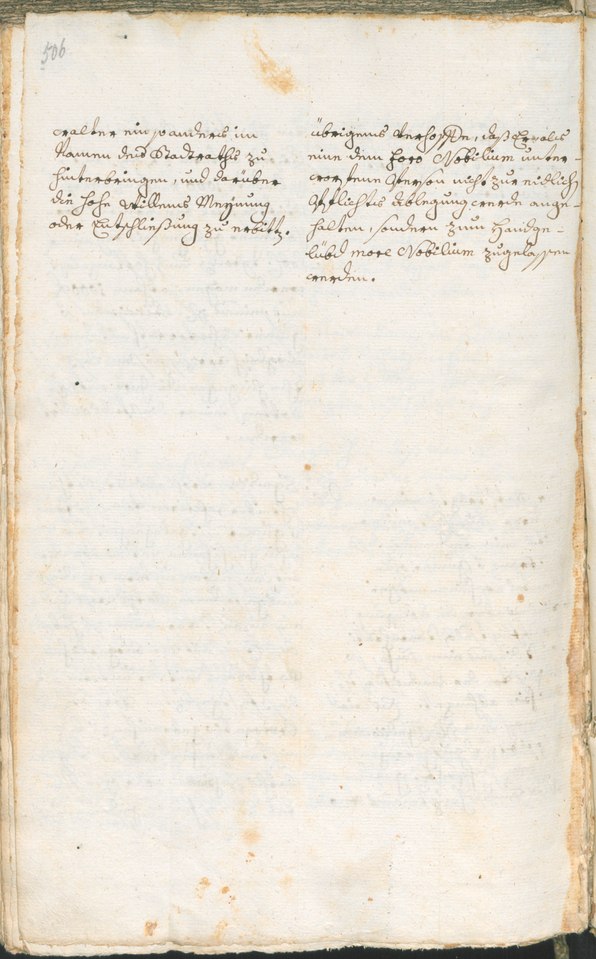 506
walter ein, anders im
Namen des Stadtraths zu
hinterbringen, und darüber
die hohe Willens Meÿnung
oder Entschließung zu erbitt.
übrigens verhoffe, daß Er als
eine dem foro Nobilium unter-
worfene Person nicht zur eidlich
Pflichts Ablegung werde ange-
halten, sondern zum Handge-
lübd more Nobilium zugelassen
werden.